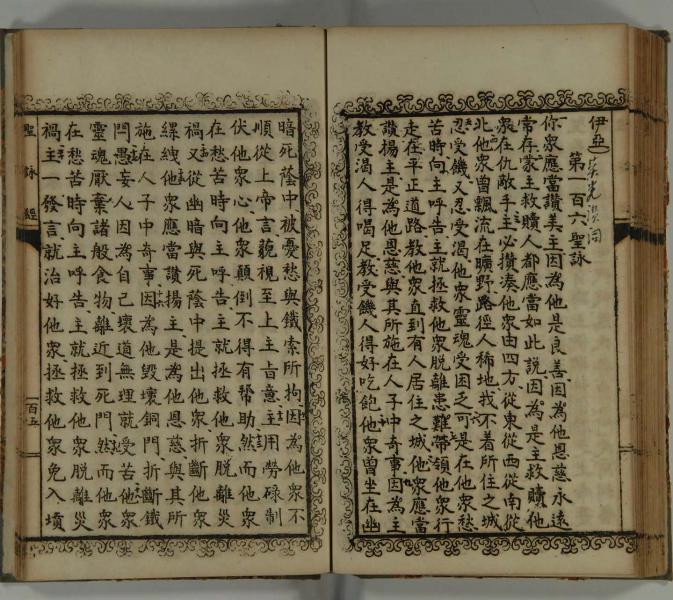 第一百六聖詠
你衆應當讚美主因為他是良善因為他恩慈永遠
常存蒙主救贖人都應當如此說因為是主救贖他
衆在仇敵手主必攢湊他衆由四方從東從西從南從
北他衆曾飄流在曠野路徑人稀地找不着所住之城
忍受饑又忍受渴他衆靈魂受困乏可是在他衆愁
苦時向主呼告主就拯救他衆脫離患難帶領他衆行
走在平正道路教他衆直到有人居住之城他衆應當
讚揚主是為他恩慈與其所施在人子中奇事因為主
教受渴人得喝足教受饑人得好吃飽他衆曾坐在幽
暗死蔭中被憂愁與鐵索所拘因為他衆不
順從上帝言藐視至上主旨意主用勞碌制
伏他衆心他衆顛倒不得有幫助然而他衆
在愁苦時向主呼告主就拯救他衆脫離災
禍又從幽暗與死蔭中提出他衆折斷他衆
縲絏他衆應當讚揚主是為他恩慈與其所
施在人子中奇事因為他毀壞銅門折斷鐵
閂愚妄人因為自己壞道無理就受苦他衆
靈魂厭棄諸般食物離近到死門然而他衆
在愁苦時向主呼告主就拯救他衆脫離災
禍主一發言就治好他衆拯救他衆免入墳
聖詠經
一百五